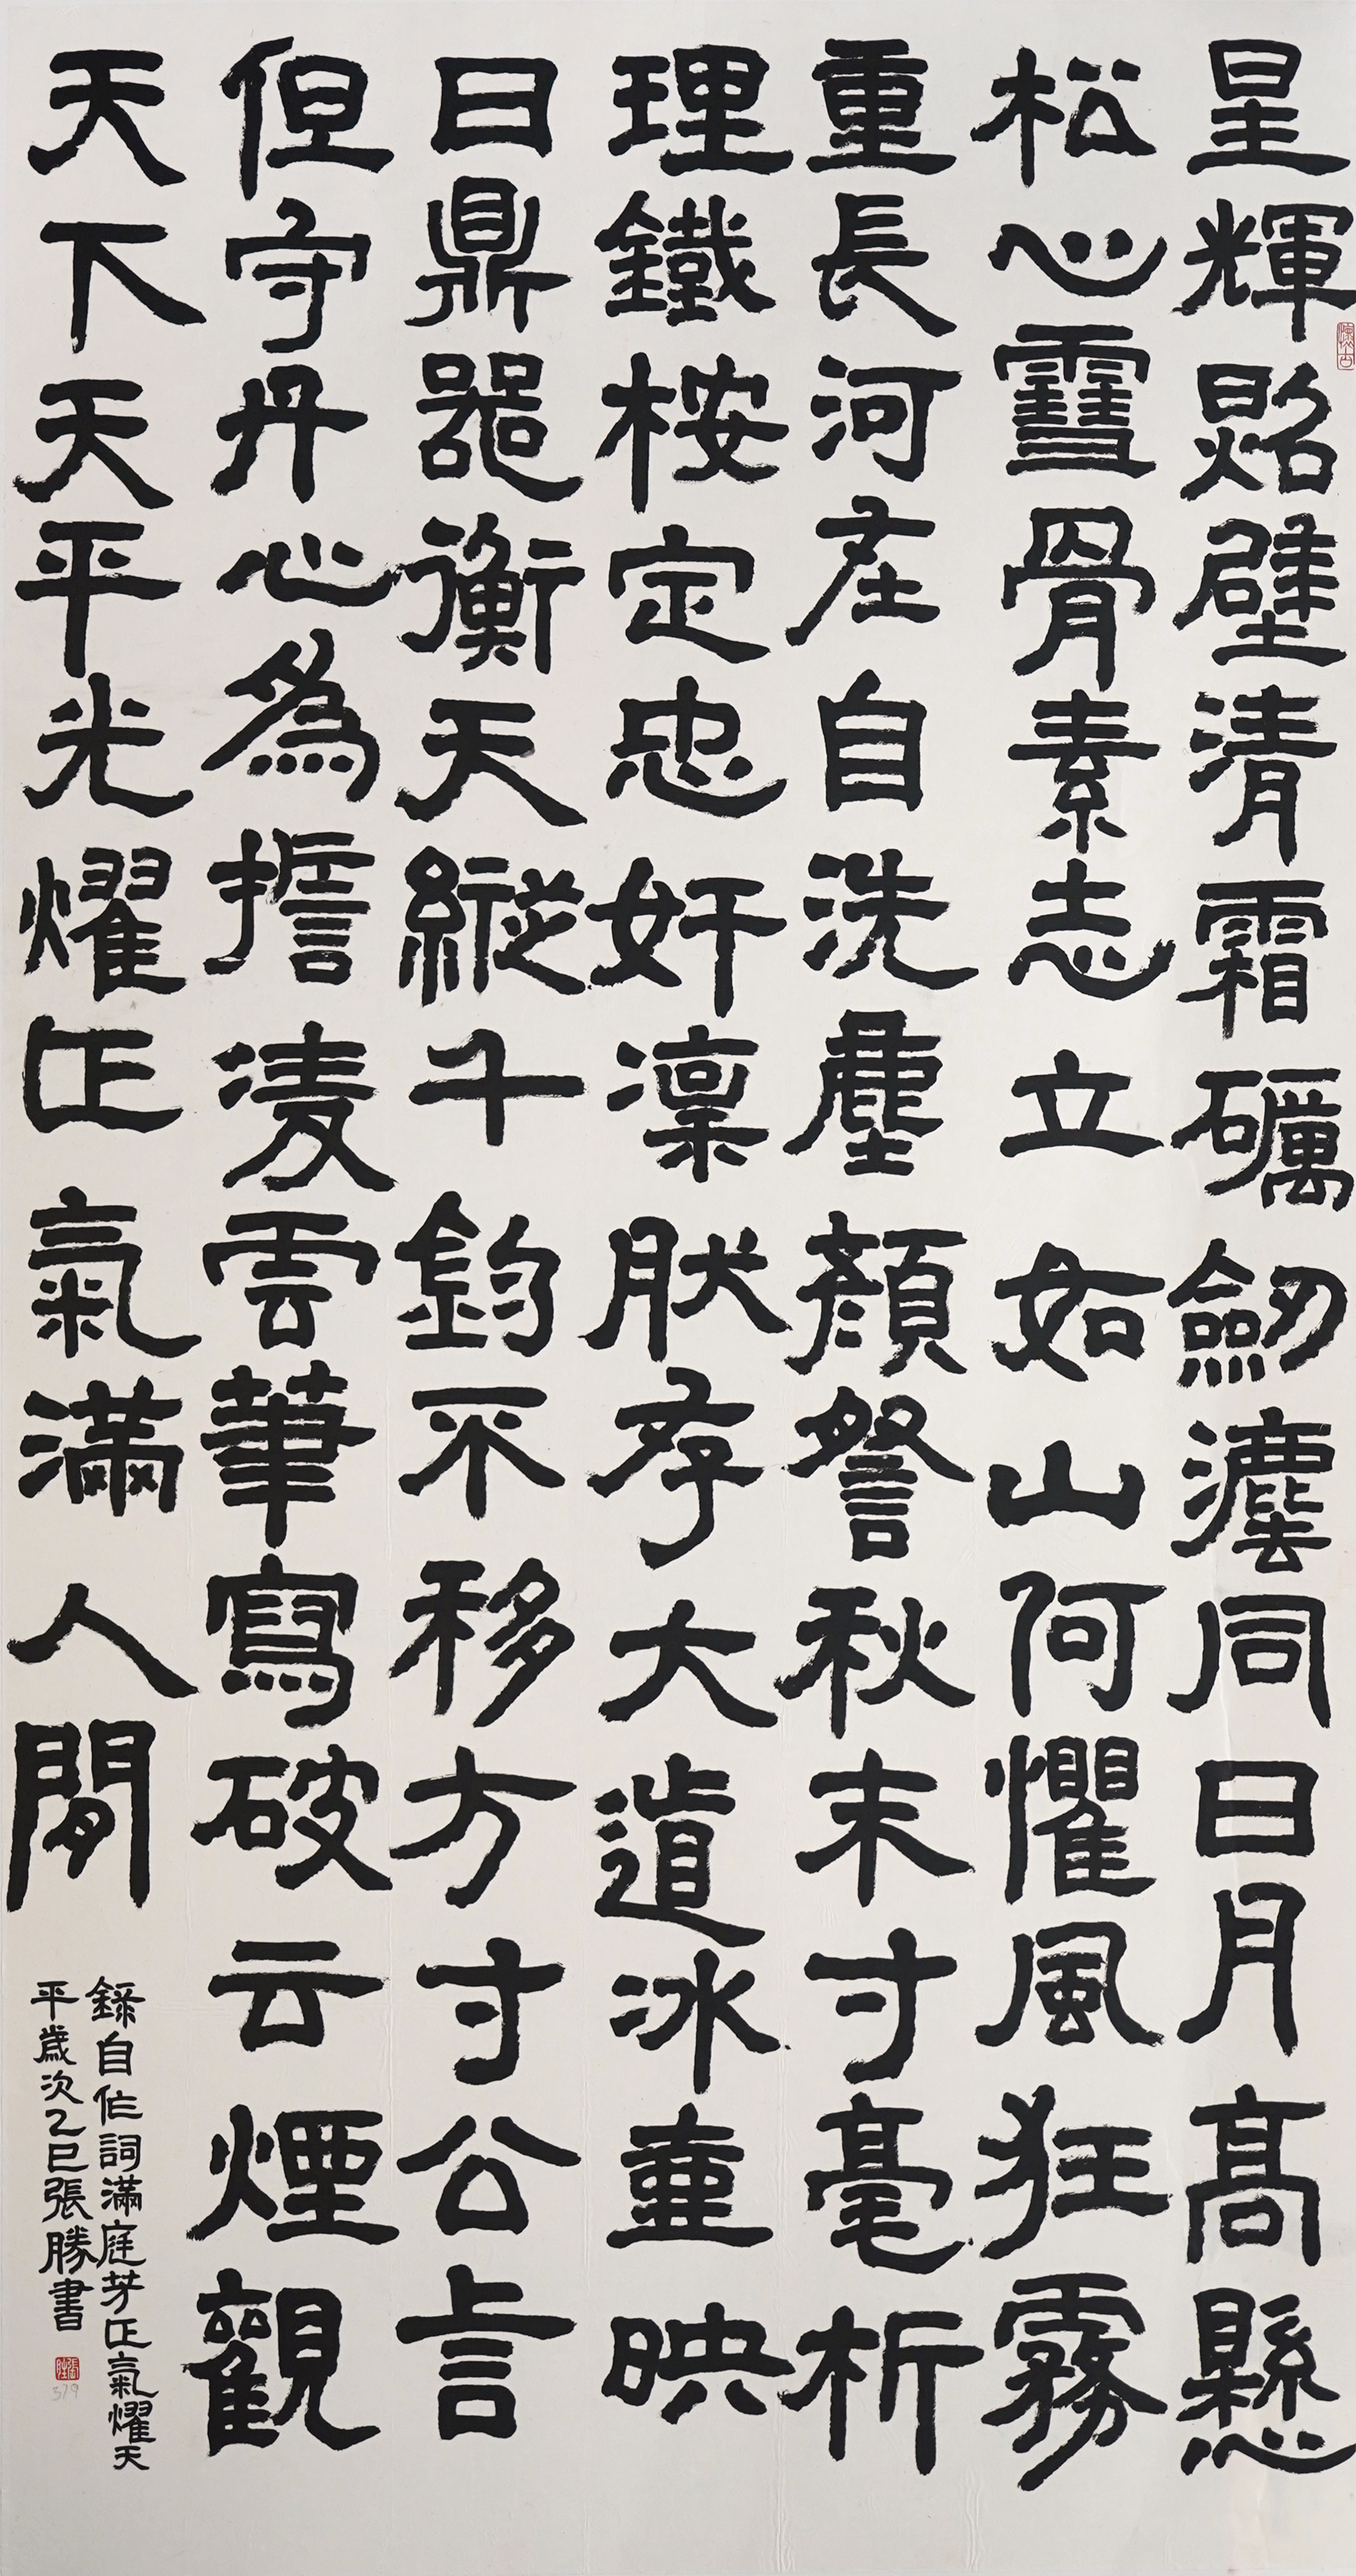 星輝照壁清霜礪劍灋同日月高懸
松心雪骨素志立如山何懼風狂霧
重長河在自洗塵顏詧秋末寸毫析
理鐵桉定忠奸凜肰存大道冰壺映
日鼎器衡天縱千鈞不移方寸公言
但守丹心為擔凌雲筆寫破云煙觀
天下天平光耀正氣滿人間
錄自作詞滿庭芳正氣耀天
平歲次乙巳張勝書
懷古
379